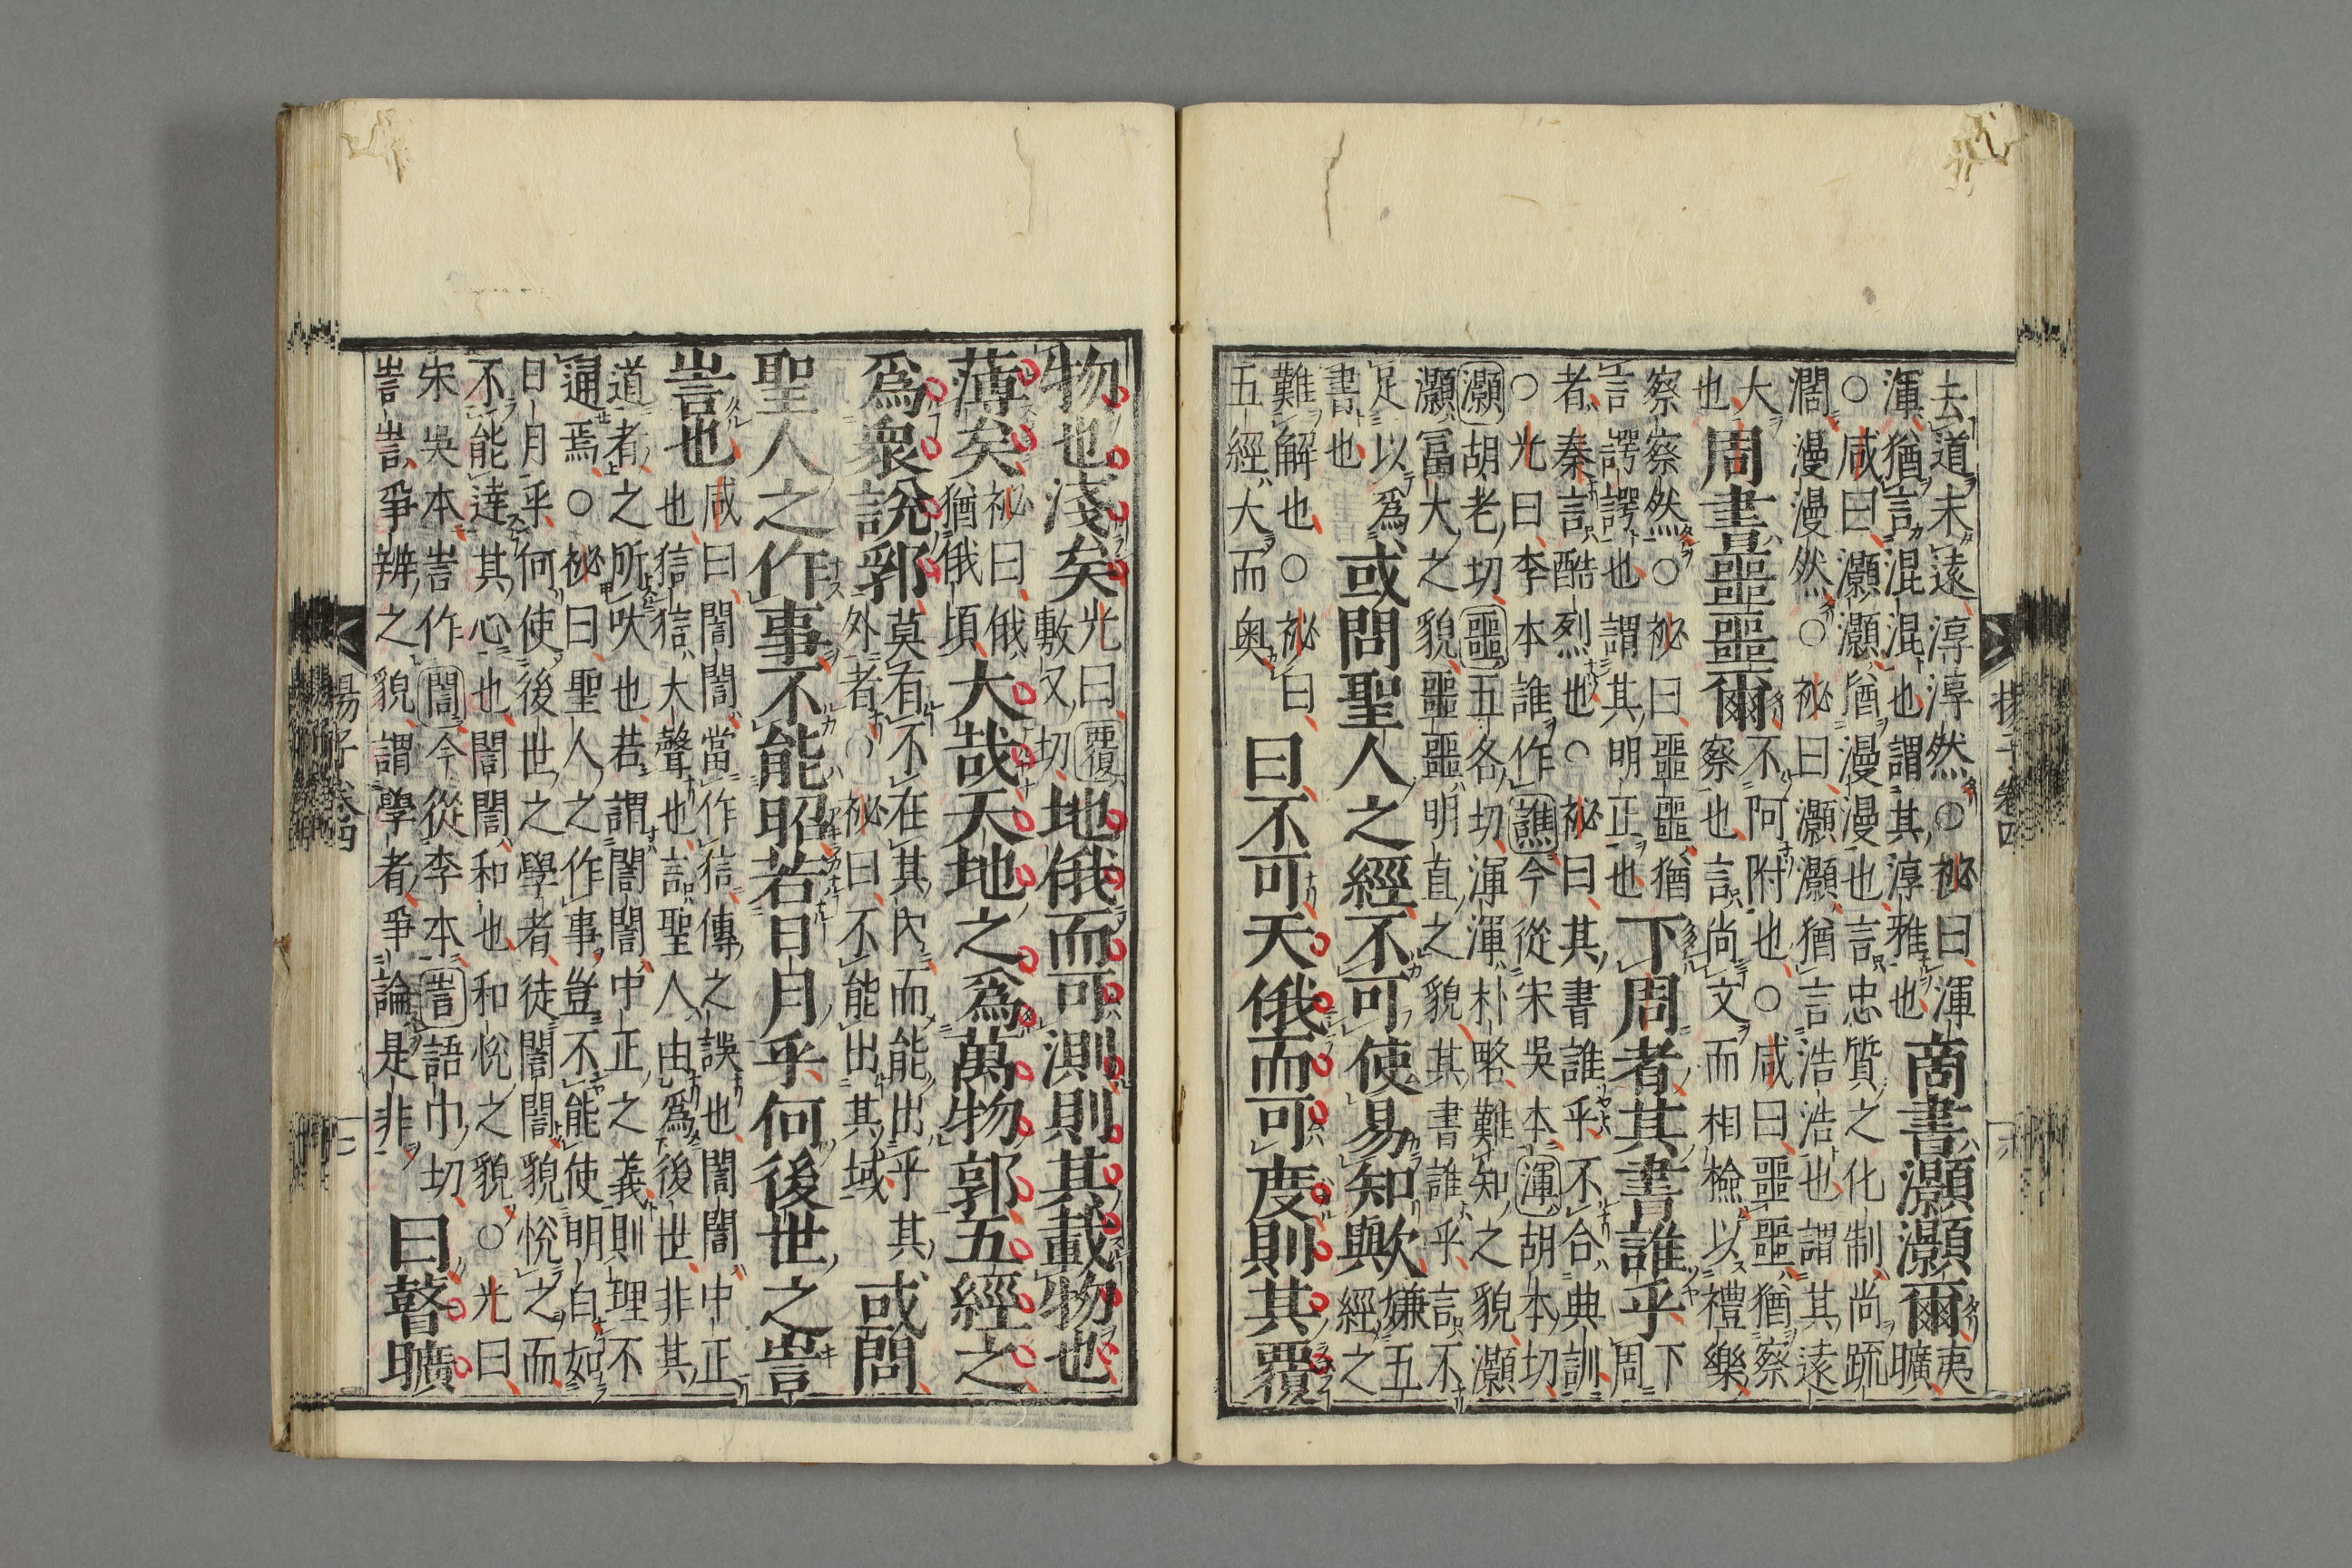 去道未遠淳淳然○祕曰渾
渾猶言混混也謂其淳雅也
商書灝灝爾
夷曠
○咸曰灝灝猶漫漫也言忠質之化制尚疏
濶漫漫然○祕曰灝灝猶言浩浩也謂其遠
大也
周書噩噩爾
不阿附也○咸曰噩噩猶察
察也言尚文而相檢以禮樂
察察然○祕曰噩噩猶
言諤諤也謂其明正也
下周者其書譙乎
下周
者秦言酷烈也○祕曰其書譙乎不合典訓
○光曰李本譙作譙今從宋吳本渾胡本切
灝胡老切噩五各切渾渾朴略難知之貌灝
灝富大之貌噩噩明直之貌其書譙乎言不
足以爲
書也
或問聖人之經不可使易知歟
嫌五
經之
難解也○祕曰
五經大而奥
曰不可天俄而可度則其覆
物也淺矣
光曰覆
敷又切
地俄而可測則其載物也
薄矣
祕曰俄
猶俄頃
大哉天地之爲萬物郭五經之
爲衆說郭
莫有不在其內而能出乎其
外者○祕曰不能出其域
或問
聖人之作事不能昭若日月乎何後世之訔
訔也
咸曰誾誾當作信傳之誤也誾誾中正
也信信大聲也言聖人由爲後世非其
道者之所吠也若謂誾誾中正之義則理不
通焉○祕曰聖人之作事豈不能使明白如
日月乎何使後世之學者徒誾誾貌悅之而
不能達其心也誾誾和也和悅之貌○光曰
宋吳本訔作誾今從李本訔語巾切
訔訔爭辨之貌謂學者爭論是非
曰瞽曠
揚子卷四
揚子卷四